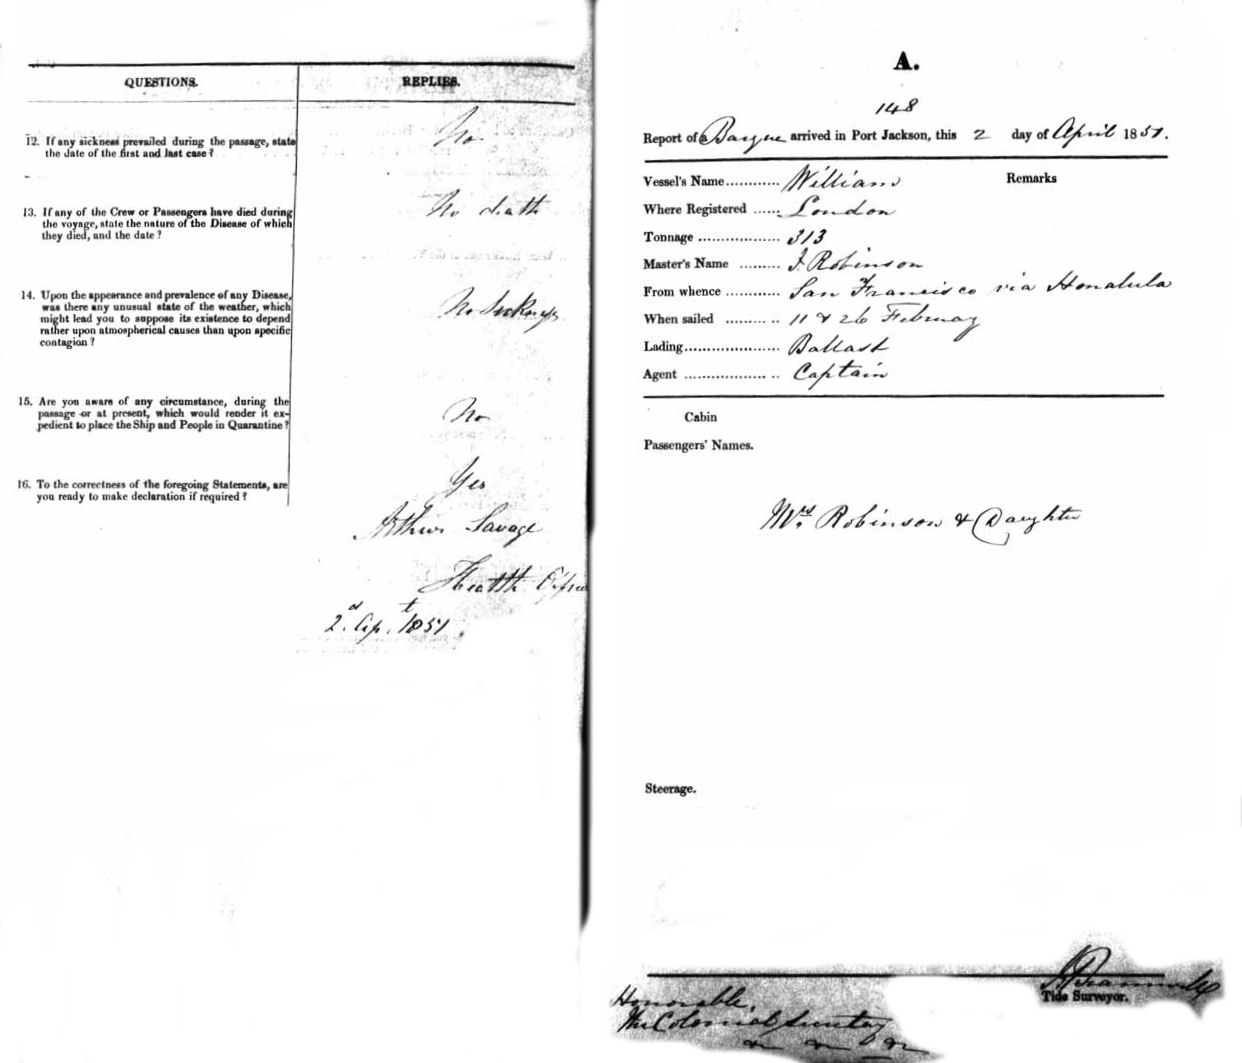 QUESTIONS.
REPLIES.
12. If any sickness prevailed during the passage, state
the date of the first and last case?
No
13. If any of the Crew or Passengers have died during
the voyage, state the nature of the Disease of which
they died, and the date?
No death
14. Upon the appearance and prevalence of any Disease,
was there any unusual state of the weather, which
might lead you to suppose its existence to depend
rather upon atmospherical causes than upon specific
contagion?
No Sickness
15. Are you aware of any circumstance, during the
passage or at present, which would render it ex-
pedient to place the Ship and People in Quarantine?
No
16. To the correctness of the foregoing Statements, are
you ready to make declaration if required?
Yes
Arthur Savage
Health Officer
2d. Ap. 1851
A.
148
Report of a Barque arrived in Port Jackson, this 2 day of April 1851.
Vessel's Name............ William
Remarks
Where Registered ...... London
Tonnage .................. 313
Master's Name ......... J. Robinson
From whence ............ San Francisco via Honalula
When sailed ........... 11 & 26 February
Lading..................... Ballast
Agent ..................... Captain
Cabin
Passengers' Names.
Mrs. Robinson & Daughter
Steerage.
Tide Surveyor.
Honorable,
The Colonial Secretary